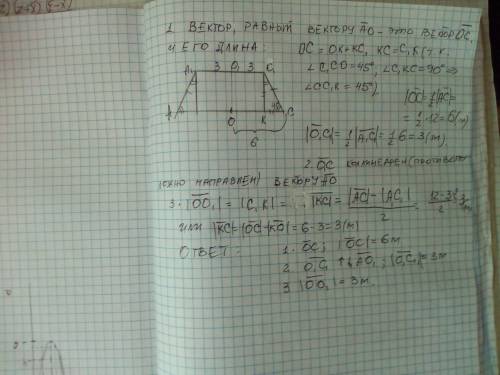 1. ВЕКТОР, РАВНЫЙ ВЕКТОРУ AO - ЭТО ВЕКТОР OC,
И ЕГО ДЛИНА: OC = OK + KC, KC = C₁K (т.к.
∠C₁CO = 45°, ∠C₁KC = 90° ⇒
∠CC₁K = 45°).
|OC| = ½|AC| =
= ½·12 = 6 (м)
A₁ 3 O₁ 3 C₁
A O K 45° C
6
|O₁C₁| = ½|A₁C₁| = ½·6 = 3 (м)
2. O₁C₁ КОЛИНЕАРЕН (ПРОТИВОПО
ЛОЖНО НАПРАВЛЕН) ВЕКТОРУ AO
3. |OO₁| = |C₁K| = |KC| = |AC| - |AC₁| / 2 = 12 - 3 / 2
ИЛИ |KC| = |OC| - |KO| = 6 - 3 = 3 (м)
ОТВЕТ: 1. OC; |OC| = 6м
2. O₁C₁ ↑↓ AO, ; |O₁C₁| = 3м
3. |OO₁| = 3м.